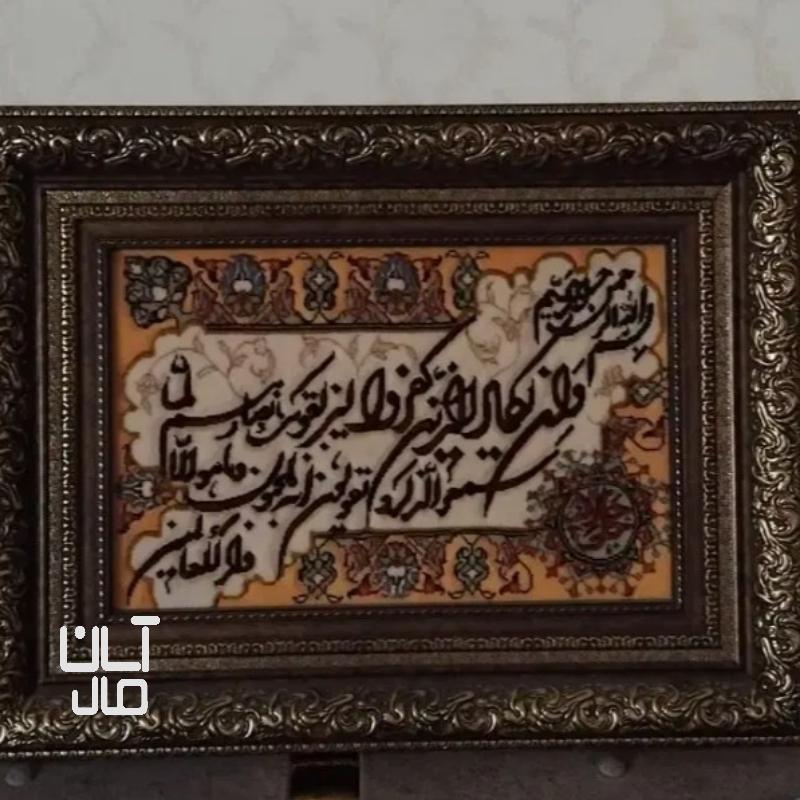 بسم الله الرحمن الرحیم
وان یکاد الذین کفروا لیزلقونک بابصارهم لما
سمعوا الذکر و یقولون انه لمجنون و ما هو الا
ذکر للعالمین
آسان
مال